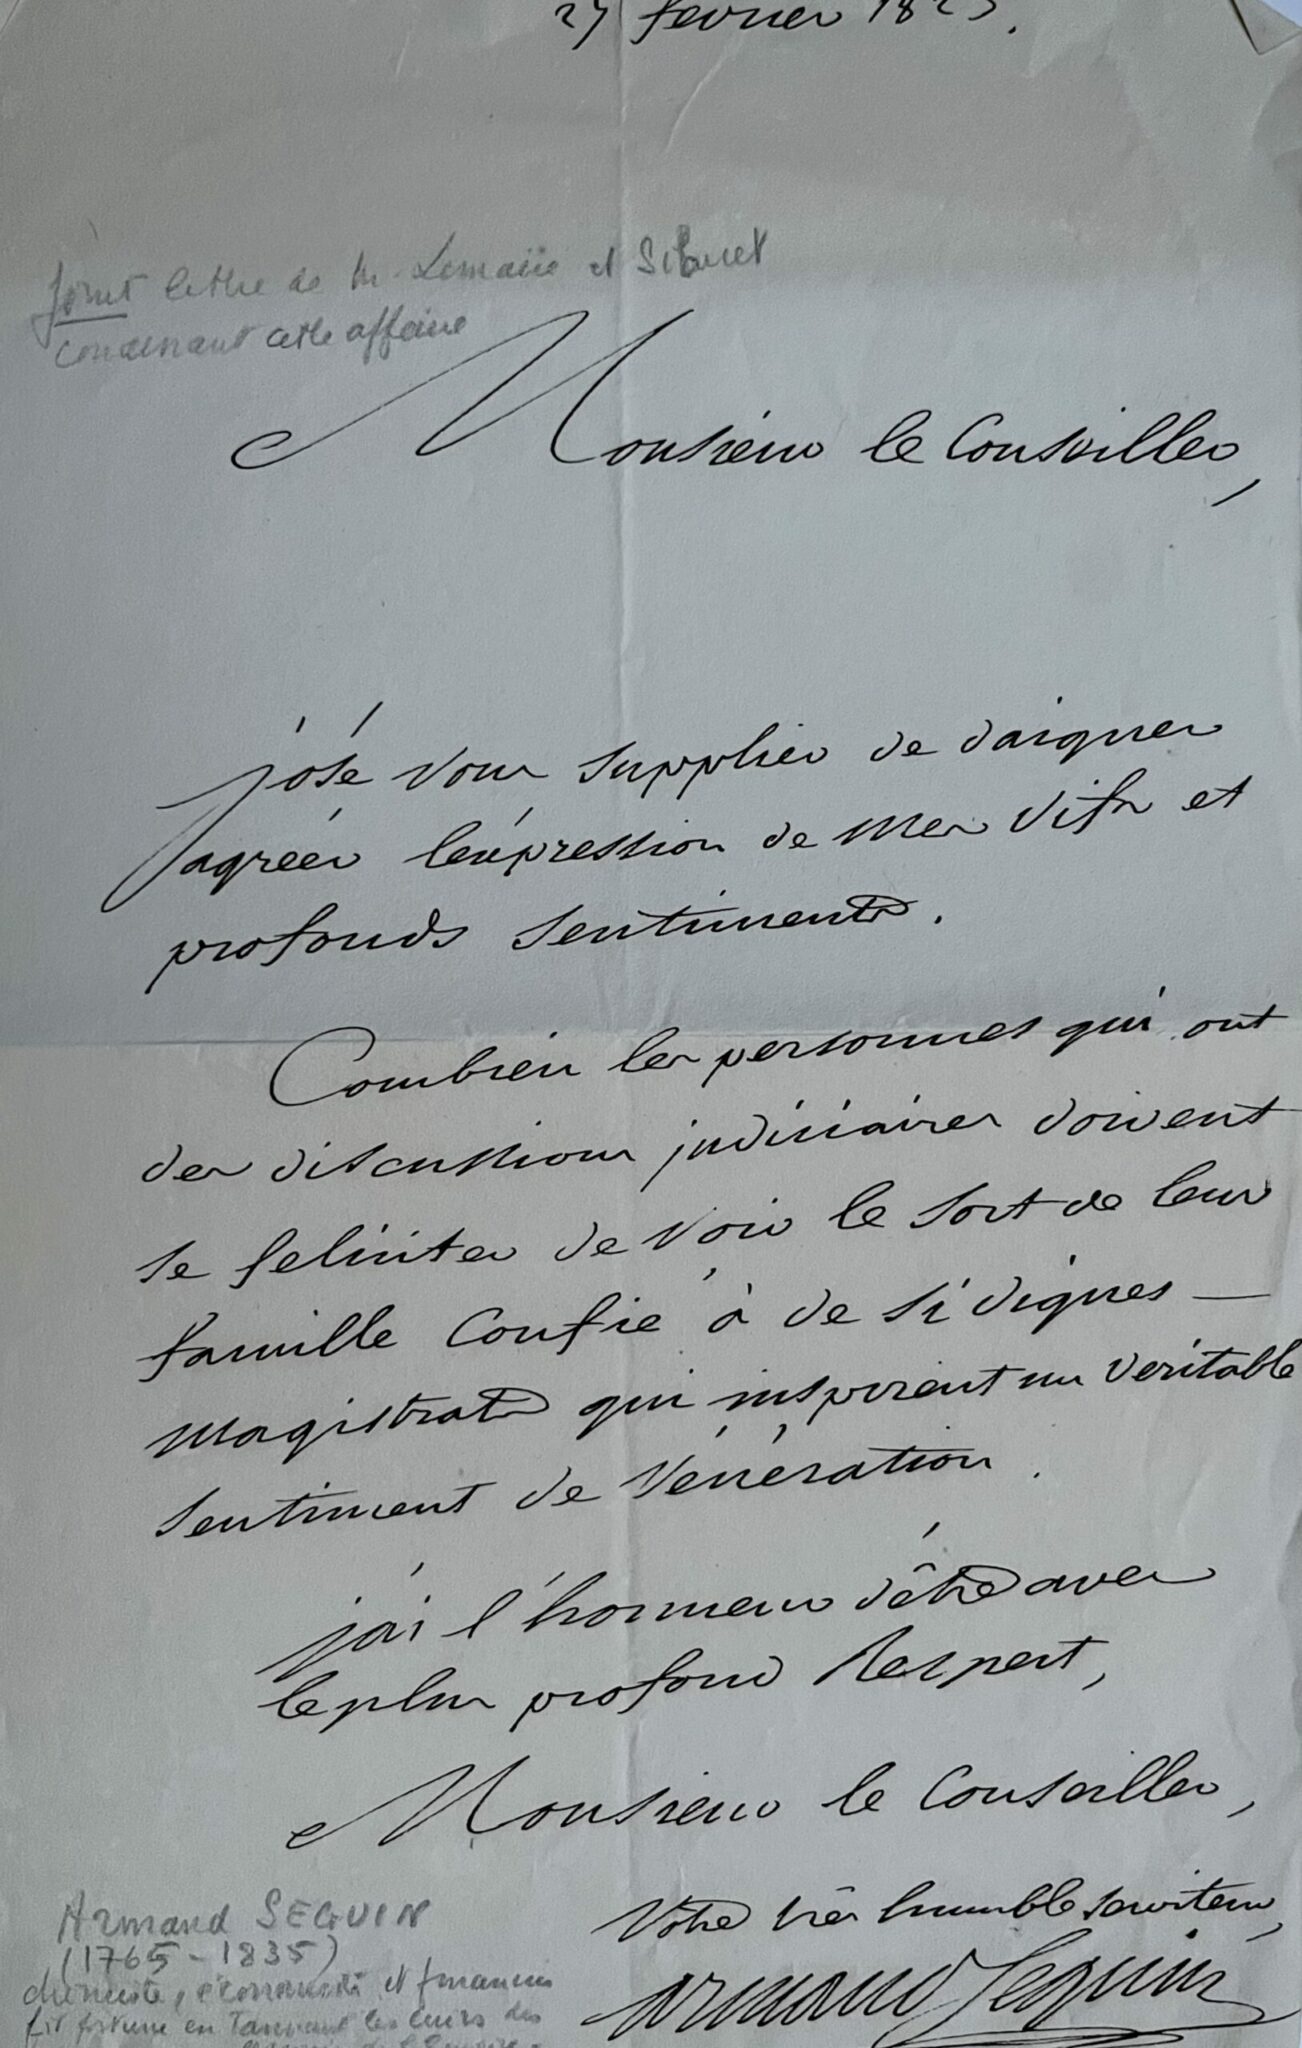 février 182
Joint lettre de M. Lemaire et
concernant cette affaire
Monsieur le Conseiller,
j'ose vous supplier de daigner
agréer l'expression de mes vifs et
profonds sentiments.
Combien les personnes qui ont
des discussions judiciaires doivent
se feliciter de voir le sort de leur
famille confié à de si dignes —
magistrats qui inspirent un veritable
sentiment de vénération.
j'ai l'honneur d'être avec
le plus profond Respect,
Monsieur le Conseiller,
Votre très humble serviteur,
Armand Seguin
Armand SEGUIN
(1765-1835)
chimiste, économiste et financier
fit fortune en tannant les cuirs des